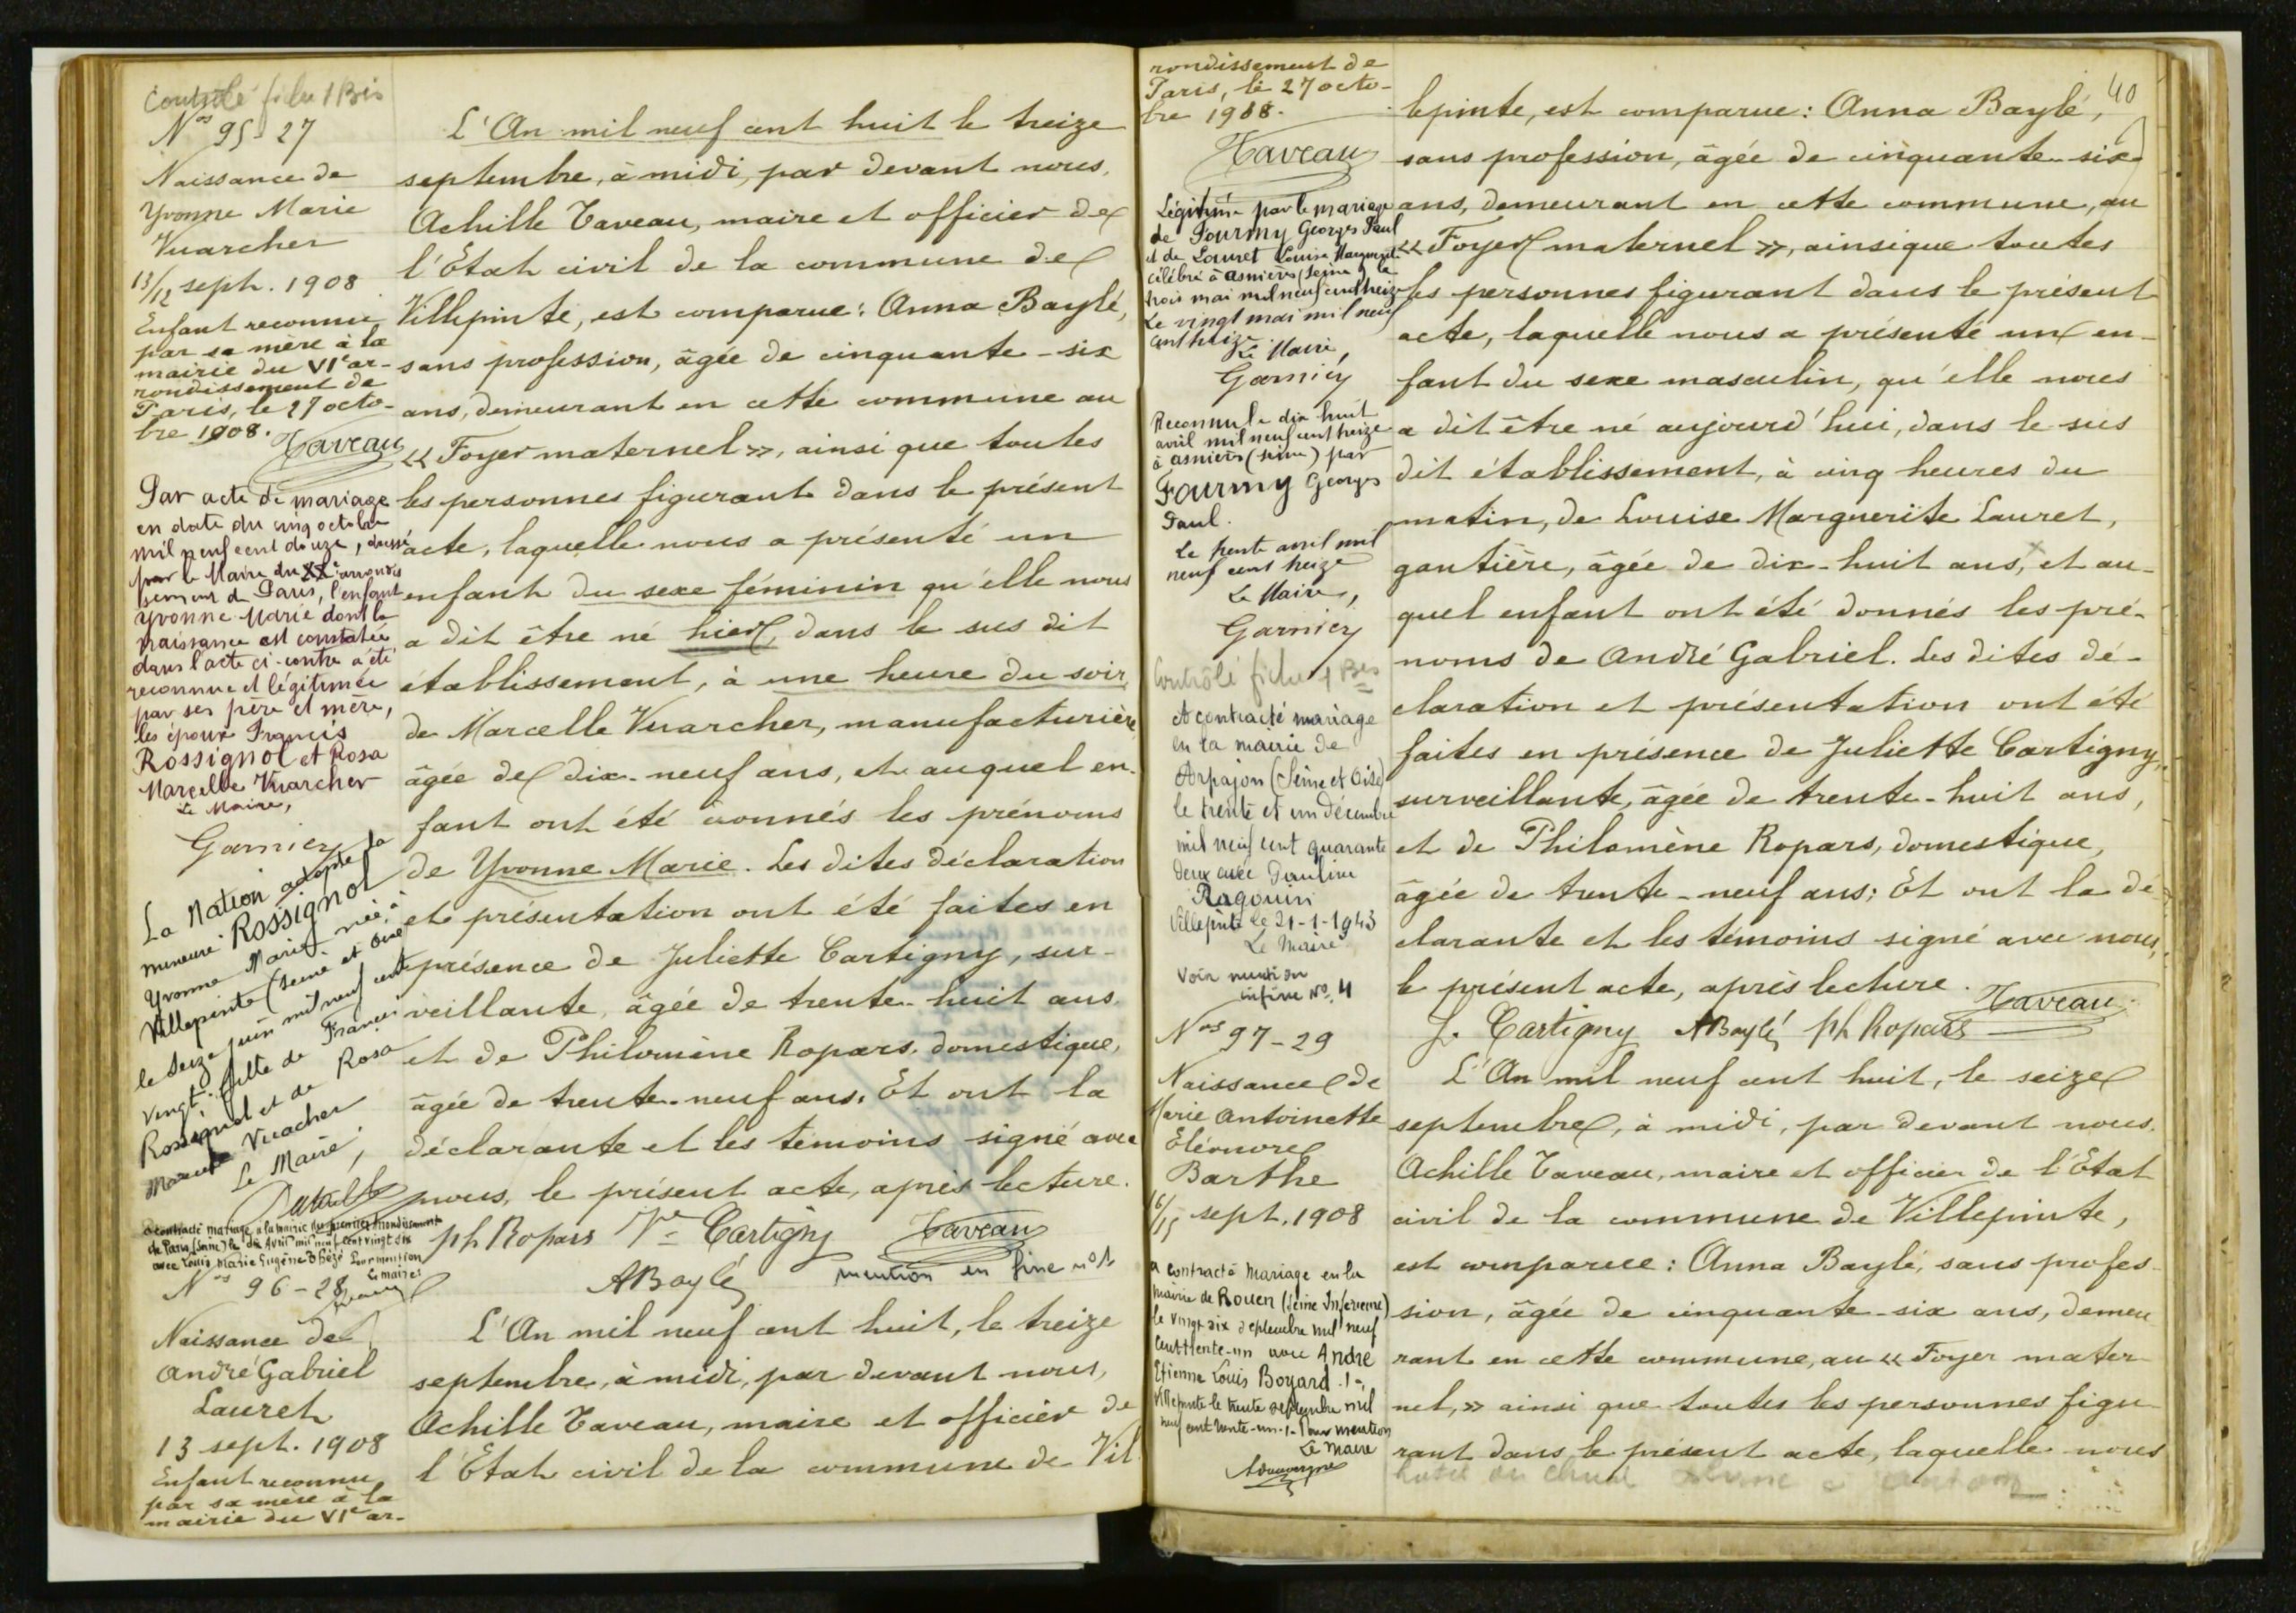 Contrôlé fiche 1 Bis
Nos 95-27
Naissance de
Yvonne Marie
Vuarcher
13/12 sept. 1908
Enfant reconnue
par sa mère à la
mairie du VIe ar-
rondissement de
Paris, le 27 octo-
bre 1908.
Taveau
Par acte de mariage
en date du cinq octobre
mil neuf cent douze, dressé
par le Maire du XXe arrondis
sement de Paris, l'enfant
Yvonne Marie dont la
naissance est constatée
dans l'acte ci-contre a été
reconnue et légitimée
par ses père et mère,
les époux Francis
Rossignol et Rosa
Marcelle Vuarcher
Le Maire,
Garnier
La Nation adopte la
mineure Rossignol
Yvonne Marie née à
Villepinte (Seine et Oise
le seize juin mil neuf cent
vingt. fille de Francis
Rossignol et de Rosa
Vuacher
Le Maire,
a contracté mariage à la mairie du premier arrondissement
de Paris (Seine) le dix Avril mil neuf cent vingt six
avec Louis Marie Eugène Pour mention
Le maire
Nos 96-28
Naissance de
André Gabriel
Lauret
13 sept. 1908
Enfant reconnu
par sa mère à la
mairie du VIe ar-
L'An mil neuf cent huit le treize
septembre, à midi, par devant nous,
Achille Taveau, maire et officier de
l'Etat civil de la commune de
Villepinte, est comparue: Anna Baylé,
sans profession, âgée de cinquante-six
ans, demeurant en cette commune au
« Foyer maternel », ainsi que toutes
les personnes figurant dans le présent
acte, laquelle nous a présenté un
enfant du sexe féminin qu'elle nous
a dit être né hier, dans le sus dit
établissement, à une heure du soir,
de Marcelle Vuarcher, manufacturière
âgée de dix-neuf ans, et auquel en-
fant ont été donnés les prénoms
de Yvonne Marie. Les dites déclaration
et présentation ont été faites en
présence de Juliette Cartigny, sur-
veillante, âgée de trente-huit ans
et de Philomène Ropars, domestique,
âgée de trente-neuf ans. Et ont la
déclarante et les témoins signé avec
nous, le présent acte, après lecture.
ph Ropars Cartigny Taveau
ABaylé mention en fine n° 1
L'An mil neuf cent huit, le treize
septembre, à midi, par devant nous,
Achille Taveau, maire et officier de
l'Etat civil de la commune de Vil
rondissement de
Paris, le 27 octo-
bre 1908.
Taveau
Légitimé par le mariage
de Fourmy Georges Paul
et de Lauret Louise Marguerite
célébré à Asnières (Seine) le
trois mai mil neuf cent treize
Le vingt mai mil neuf
cent treize
Le Maire,
Garnier
Reconnu le dix huit
avril mil neuf cent treize
à Asnières (Seine) par
Fourmy Georges
Paul.
Le trente avril mil
neuf cent treize
Le Maire,
Garnier
Contrôlé fiche 1 Bis
A contracté mariage
en la mairie de
Arpajon (Seine et Oise)
le trente et un décembre
mil neuf cent quarante
deux avec Pauline
Ragouin
Villepinte le 21-1-1943
Le Maire
Voir mention
infine No. 4
Nos 97-29
Naissance de
Marie Antoinette
Eléonore
Barthe
16/15 sept. 1908
a contracté Mariage en la
mairie de Rouen (Seine Inferieure)
le vingt six septembre mil neuf
cent trente-un avec André
Etienne Louis Boyard
Villepinte le trente septembre mil
neuf cent trente-un. Pour mention
Le Maire
40
lepinte, est comparue: Anna Baylé,
sans profession, âgée de cinquante-six
ans, demeurant en cette commune, au
« Foyer maternel », ainsi que toutes
les personnes figurant dans le présent
acte, laquelle nous a présenté un en-
fant du sexe masculin, qu'elle nous
a dit être né aujourd'hui, dans le sus
dit établissement, à cinq heures du
matin, de Louise Marguerite Lauret,
gantière, âgée de dix-huit ans, et au-
quel enfant ont été donnés les pré-
noms de André Gabriel. Les dites dé-
claration et présentation ont été
faites en présence de Juliette Cartigny,
surveillante, âgée de trente-huit ans,
et de Philomène Ropars, domestique,
âgée de trente-neuf ans; Et ont la dé
clarante et les témoins signé avec nous,
le présent acte, après lecture. Taveau
J. Cartigny ABaylé ph Ropars
L'An mil neuf cent huit, le seize
septembre, à midi, par devant nous,
Achille Taveau, maire et officier de l'Etat
civil de la commune de Villepinte,
est comparue: Anna Baylé, sans profes-
sion, âgée de cinquante-six ans, demeu
rant en cette commune, au « Foyer mater-
nel, » ainsi que toutes les personnes figu
rant dans le présent acte, laquelle nous